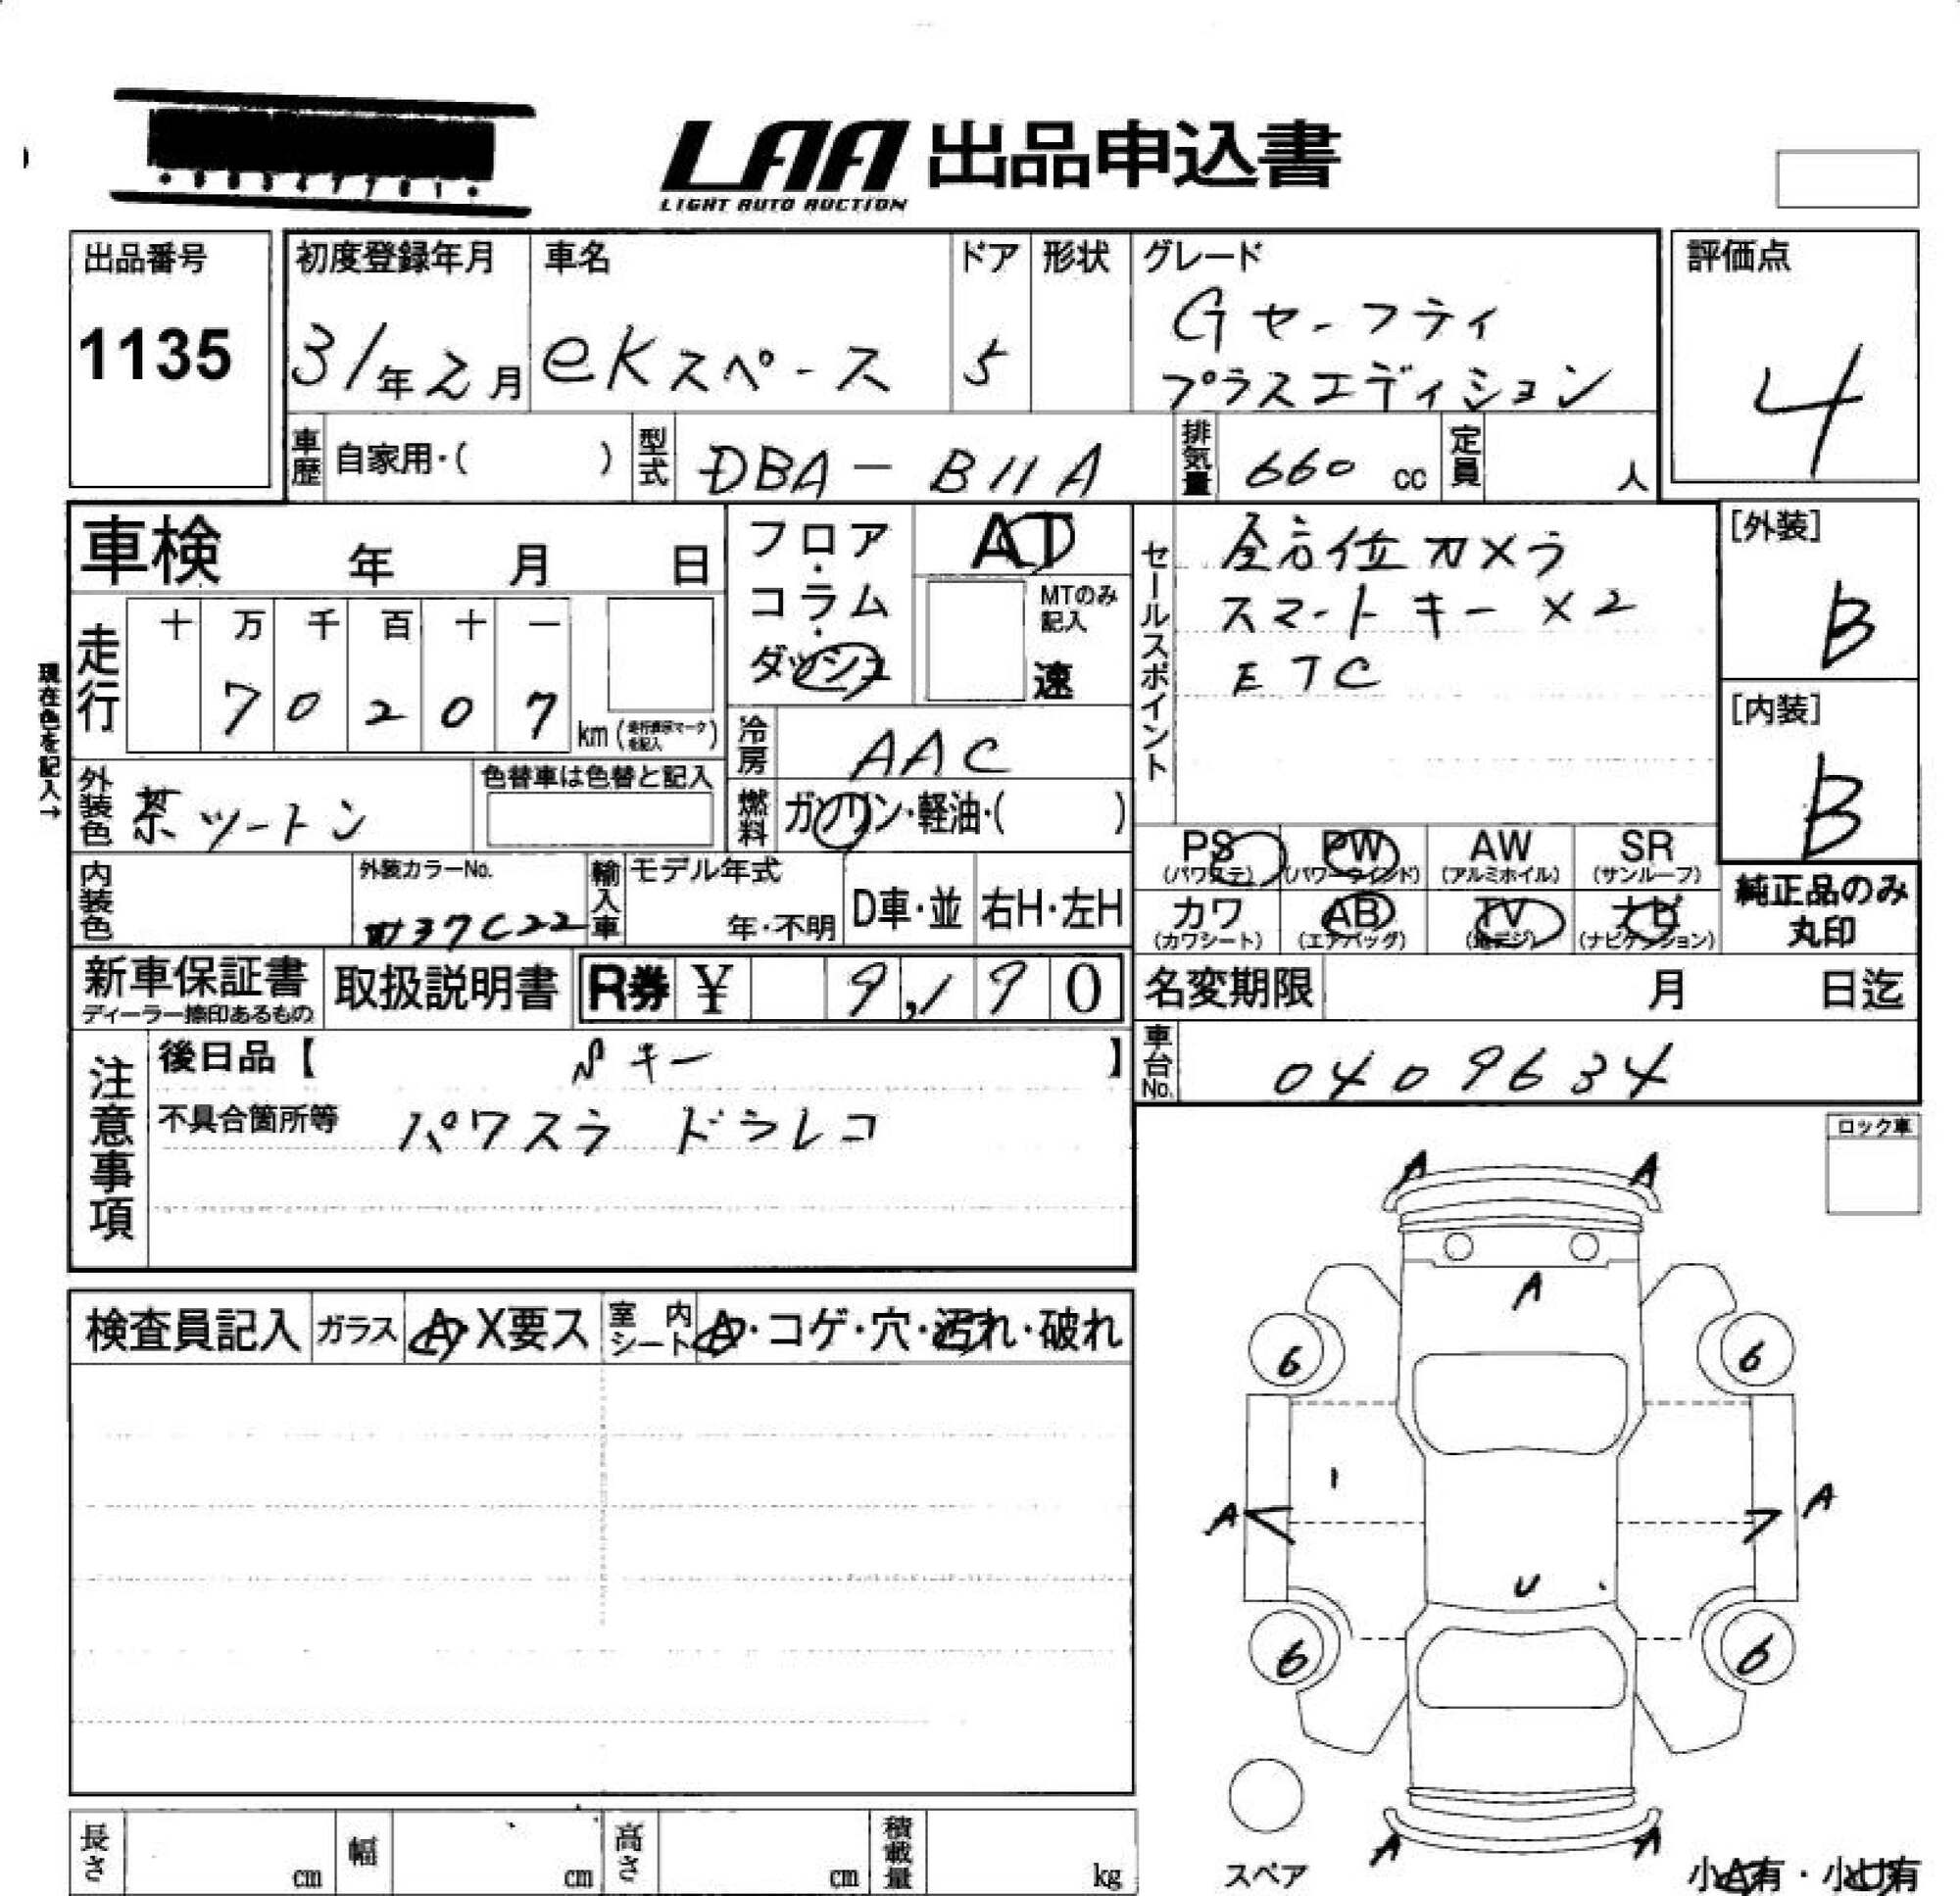 LAA 出品申込書
LIGHT AUTO AUCTION
出品番号
1135
初度登録年月
31年2月
車名
eKスペース
ドア
5
形状
グレード
Gセーフティ
プラスエディション
評価点
4
車歴 自家用・( )
型式 DBA-B11A
排気量 660 cc
定員 人
車検 年 月 日
フロア・コラム・ダッシュ
AT
MTのみ記入
速
セールスポイント
全方位カメラ
スマートキー×2
ETC
[外装]
B
[内装]
B
現在色を記入→
走行
十 万 千 百 十 一
7 0 2 0 7
km (走行表示マークを記入)
冷房 AAC
外装色 茶ツートン
色替車は色替と記入
燃料 ガソリン・軽油・( )
PS (パワステ)
PW (パワーウインド)
AW (アルミホイル)
SR (サンルーフ)
カワ (カワシート)
AB (エアバッグ)
TV (地デジ)
ナビ (ナビゲーション)
純正品のみ
丸印
内装色
外装カラーNo.
W37C22
輸入車
モデル年式
年・不明
D車・並
右H・左H
新車保証書
ディーラー捺印あるもの
取扱説明書
R券 ¥ 9,190
名変期限 月 日迄
車台No. 0409634
注意事項
後日品【 Sキー 】
不具合箇所等 パワスラ ドラレコ
ロック車
検査員記入
ガラス A・X要ス
室内シート A・コゲ・穴・汚れ・破れ
A A
A
6 6
A A
U
6 6
A A
スペア
小A有・小U有
長さ cm
幅 cm
高さ cm
積載量 kg